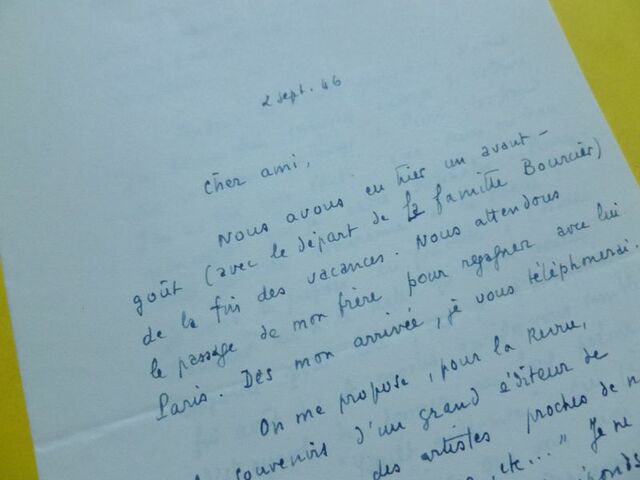 2 sept. 46
Cher ami,
Nous avons eu hier un avant-
goût (avec le départ de la famille Bourcier)
de la fin des vacances. Nous attendons
le passage de mon frère pour regagner avec lui
Paris. Dès mon arrivée, je vous téléphonerai.
On me propose, pour la Revue,
souvenirs d'un grand éditeur de
des artistes proches de n
, etc..." Je ne